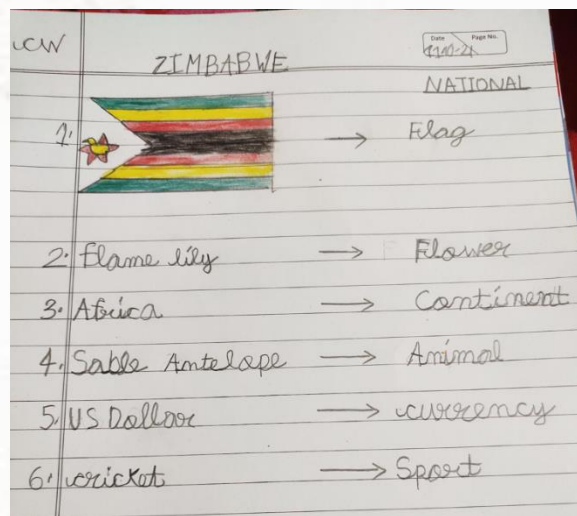 CW
Date Page No.
ZIMBABWE
NATIONAL
1. → Flag
2. Flame lily → Flower
3. Africa → Continent
4. Sable Antelope → Animal
5. US Dollar → currency
6. cricket → Sport